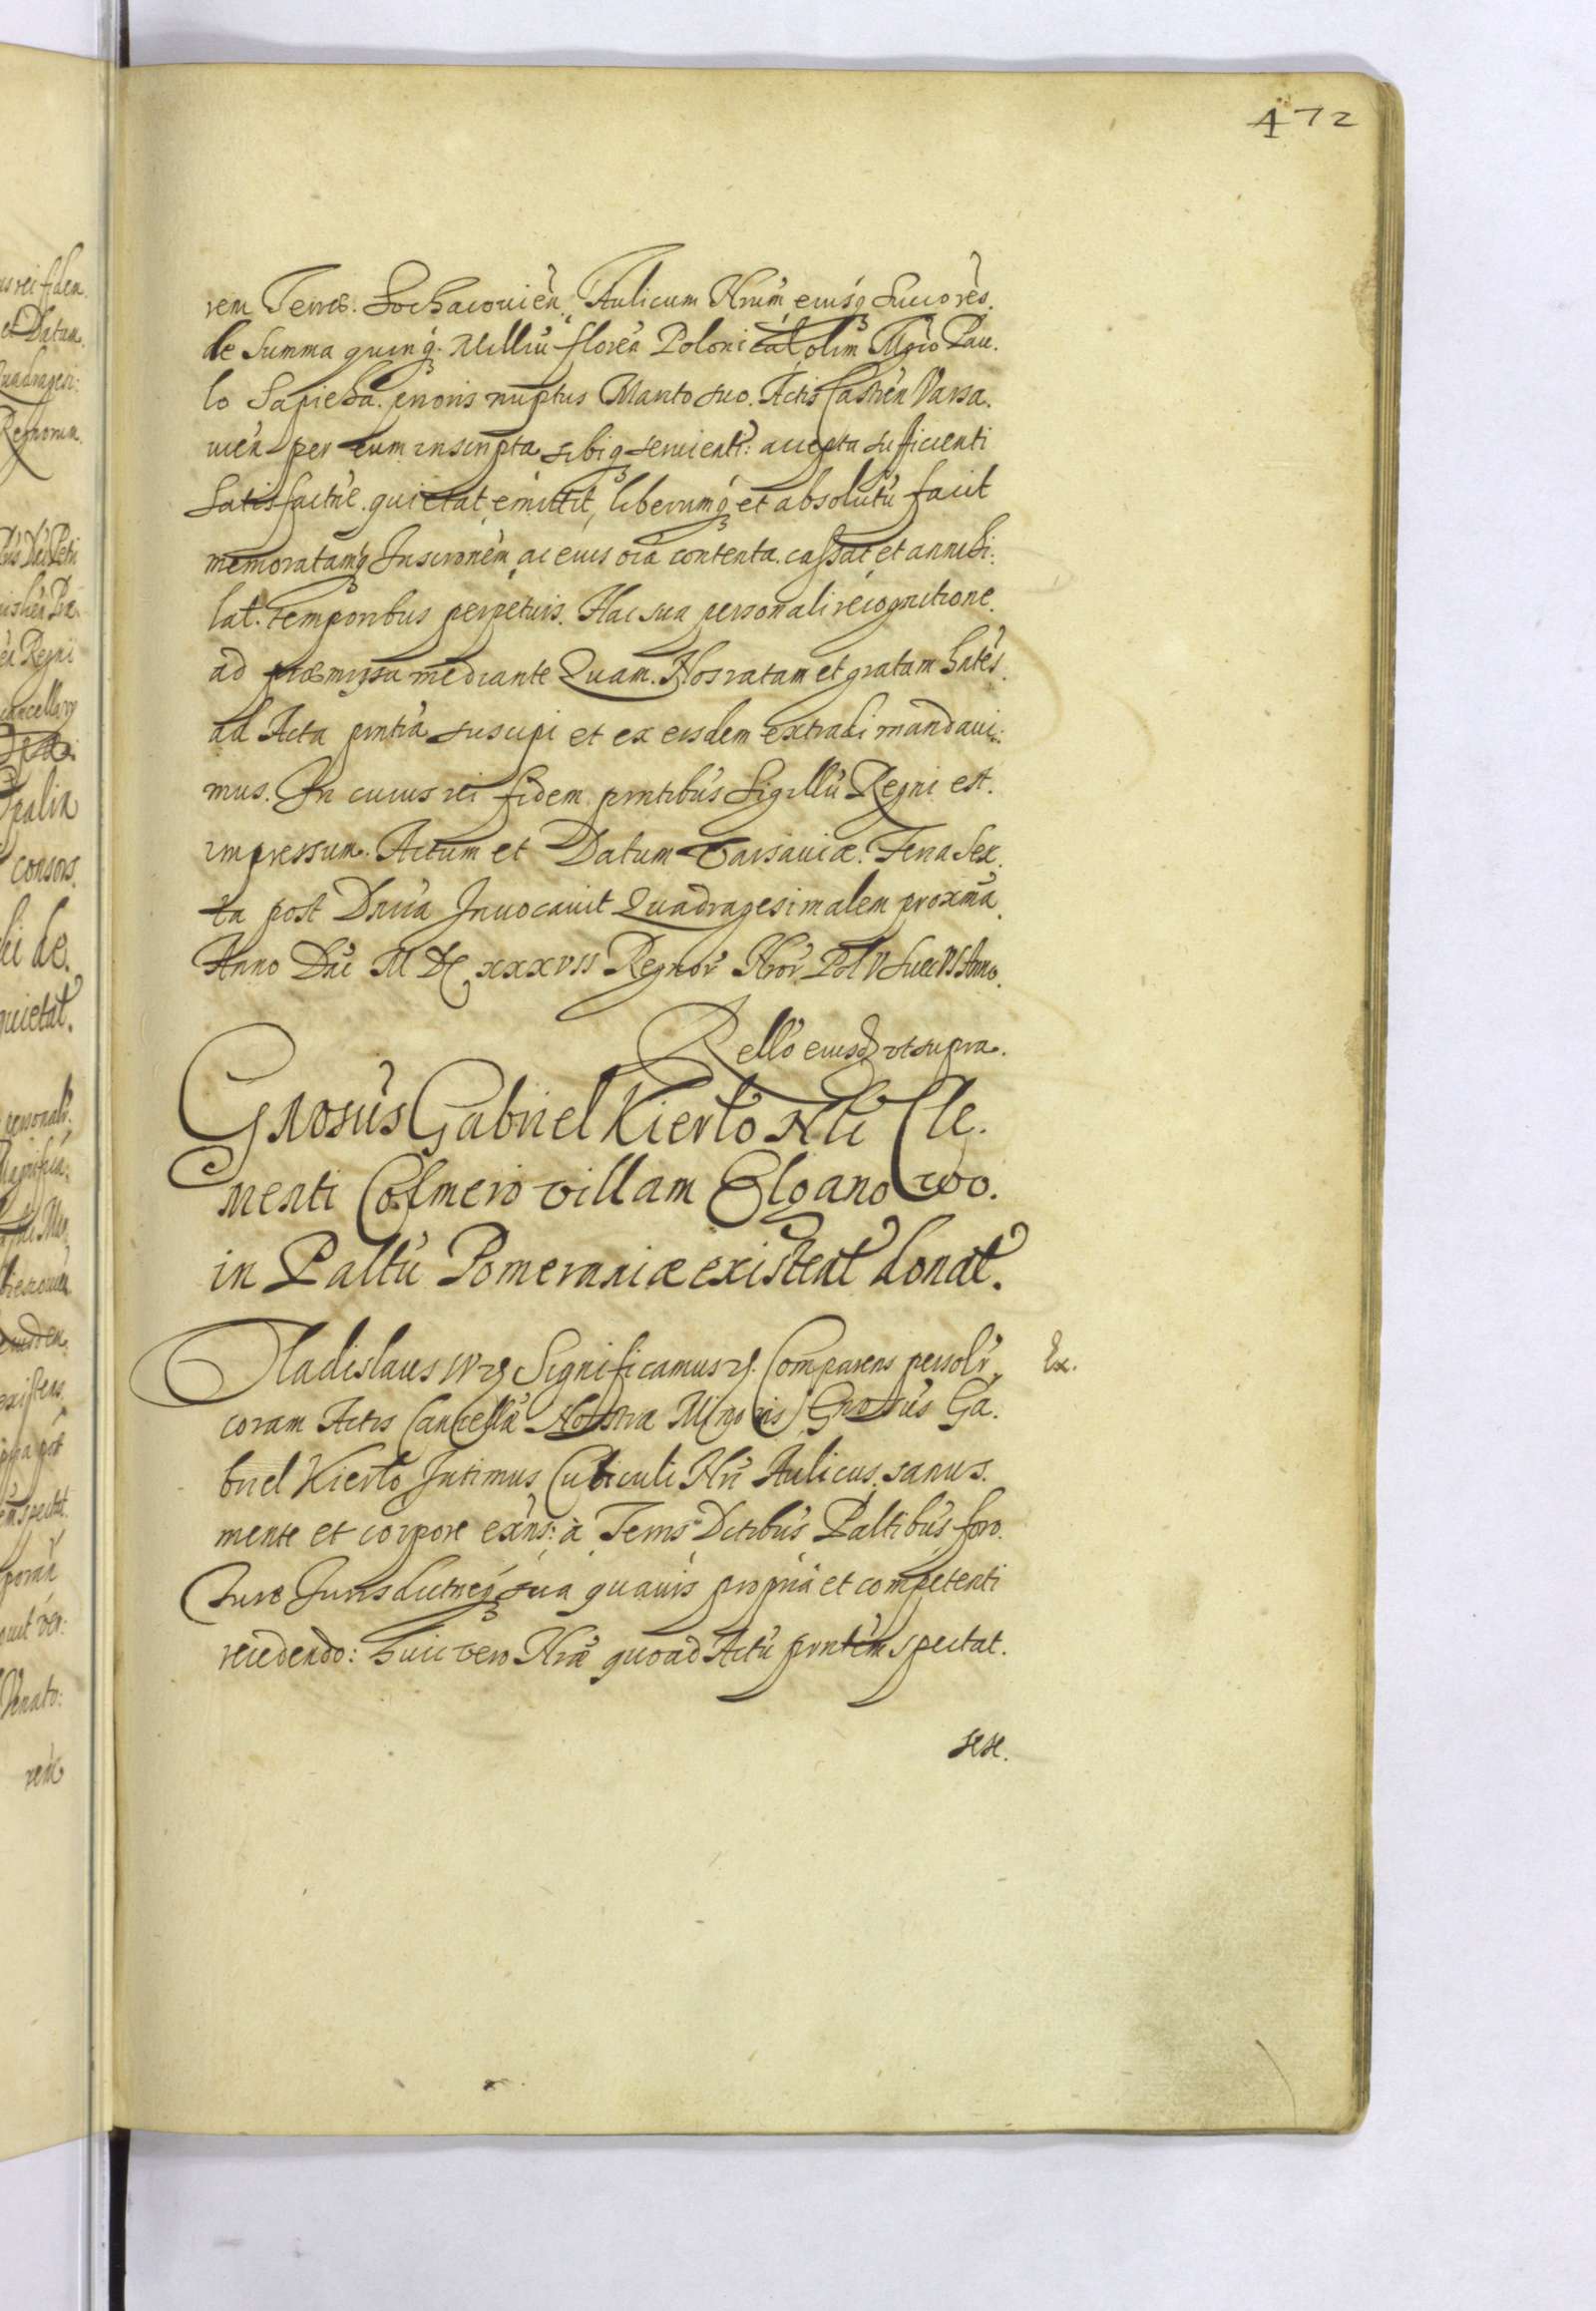 472
rem Terrae. Sochacouień, Aulicum Nrūm eiusq Succores.
de Summa quinq. Milliū floreń Polonicaľ olim Mgco Pau.
lo Sapieha. prioris nuptus Marito suo. Actis Castreń Varsa.
uień per eum inscripta sibiq seruienti: accepta sufficienti
Satisfactne. quietat, emittit, liberumq et absolutū facit
memoratamq Inscronem, ac eius oia contenta. cassat, et annihi:
lat. temporibus perpetuis. Hac sua personali recognitione.
ad praemissa mediante Quam. Nos ratam et gratam hates.
ad Acta pntia suscipi et ex eisdem extradi mandaui:
mus. In cuius rei fidem pntibus Sigillū Regni est.
impressum. Actum et Datum Varsauiae. Feria Sex.
ta post Dnica Inuocauit Quadragesimalem proxima.
Anno Dni MDCxxxvii Regnor Nror Pol V Suec VI Anno.
Rello eiusd vt supra.
Gnosus Gabriel Kierlo Nli Cle.
menti Colmero villam Elganowo.
in Palťu Pomeraniae existent donat.
Vladislaus IV Significamus. Comparens persolr
Ex.
coram Actis Cancellae Nostrae Minoris Gnosus Ga.
briel Kierlo Intimus Cubiculi Nri Aulicus, sanus.
mente et corpore exns: à Terris Dctibus Palťibus foro.
Iure Iurisdictneq sua quauis propria et competenti
recedendo: huic vero Nrae quoad Actū pntem spectat.
sese.